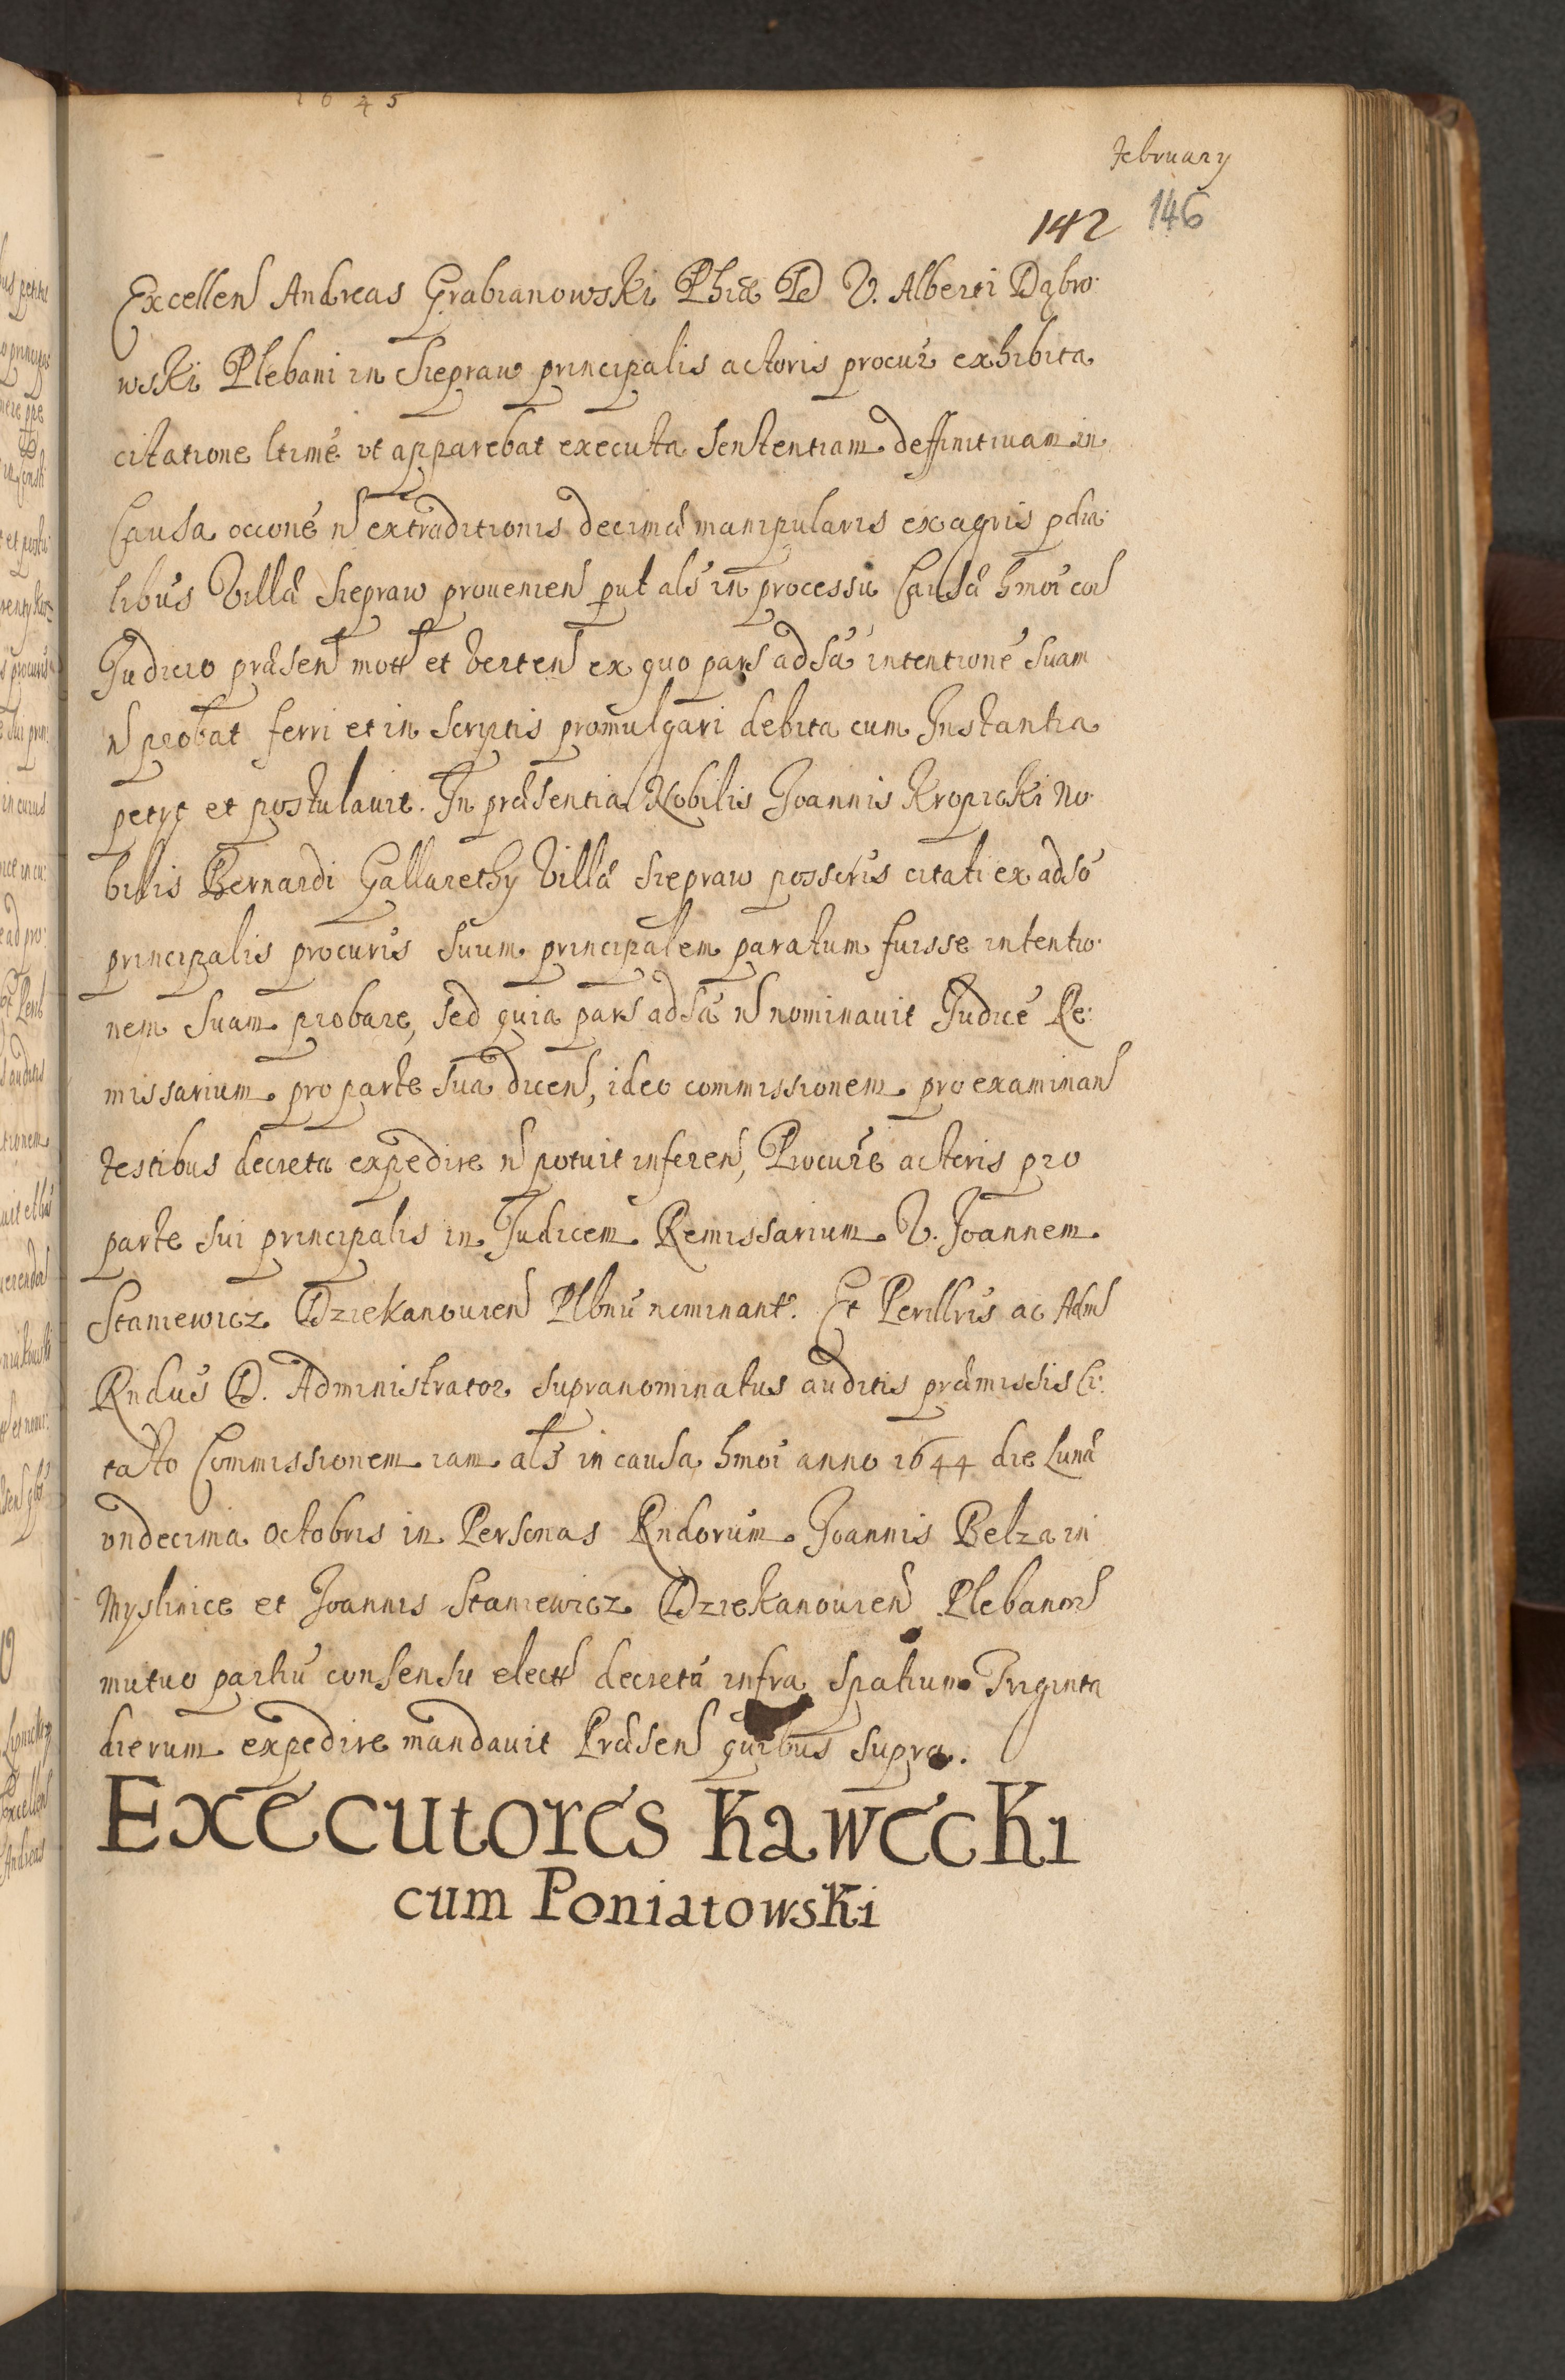 1645
February
142 146
Excellen Andreas Grabianowski Phiæ D V. Alberti Dąbro-
wski Plebani in Siepraw principalis actoris procur exhibita
citatione ltimé vt apparebat executa Sententiam deffinitiuam in
Causa occoné n extraditionis decimæ manipularis ex agris pdia-
libus Villæ Siepraw prouenien put als in processu Causæ hmoi cor
Judicio præsen mott et verten ex quo pars adsa intentioné Suam
n probat ferri et in Scriptis promulgari debita cum Instantia
petyt et postulauit. In præsentia Nobilis Joannis Kropicki No-
bilis Bernardi Gallarethy Villæ Siepraw possoris citati ex adso
principalis procuris Suum principalem paratum fuisse intentio-
nem Suam probare, Sed quia pars adsa n nominauit Judicé Re-
missarium pro parte Sua dicen, ideo commissionem pro examinan
testibus decreta expedire n potuit inferen, Procure actoris pro
parte Sui principalis in Judicem Remissarium V. Joannem
Staniewicz Dziekanouien Plbnu nominante. Et Perillris ac Adm
Rndus D. Administrator supranominatus auditis præmissis Ci-
tato Commissionem iam als in causa hmoi anno 1644 die Lunæ
vndecima Octobris in Personas Rndorum Joannis Belza in
Myslinice et Joannis Staniewicz Dziekanouien Plebanor
mutuo partiu consensu elect decreta infra Spatium Triginta
dierum expedire mandauit Præsen quibus supra.
Executores Kawecki
cum Poniatowski